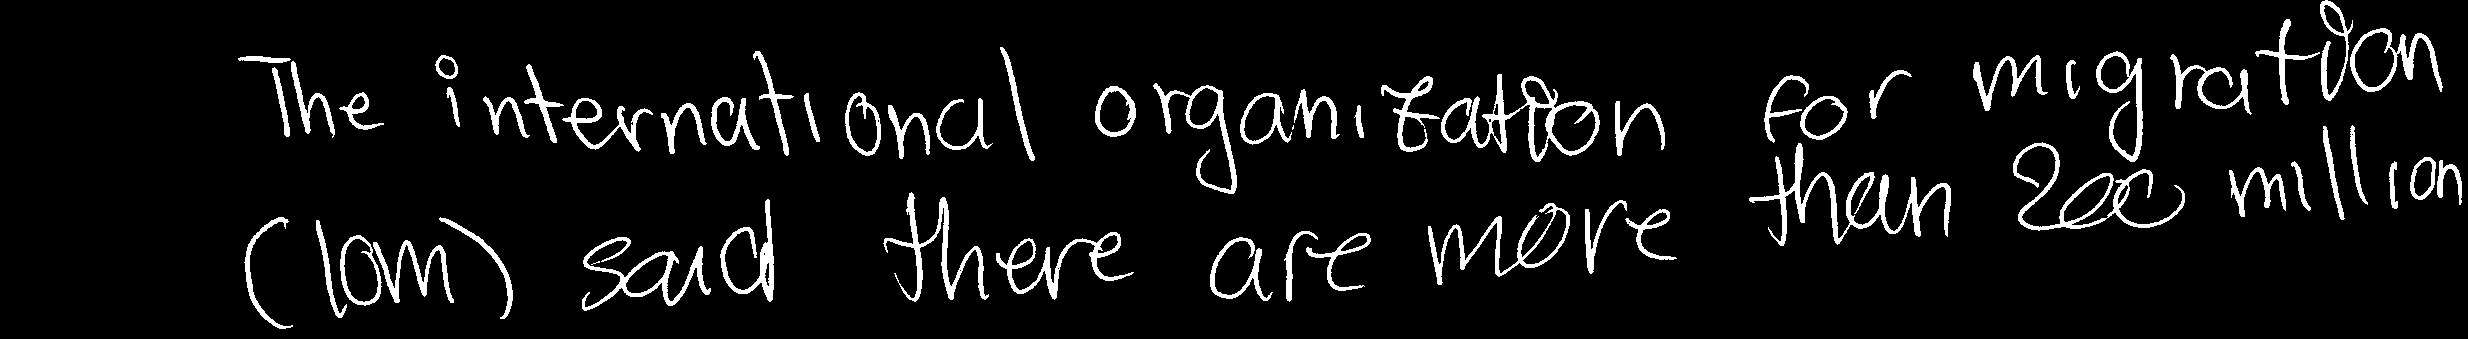 The international organization for migration
(IOM) said there are more than 200 million